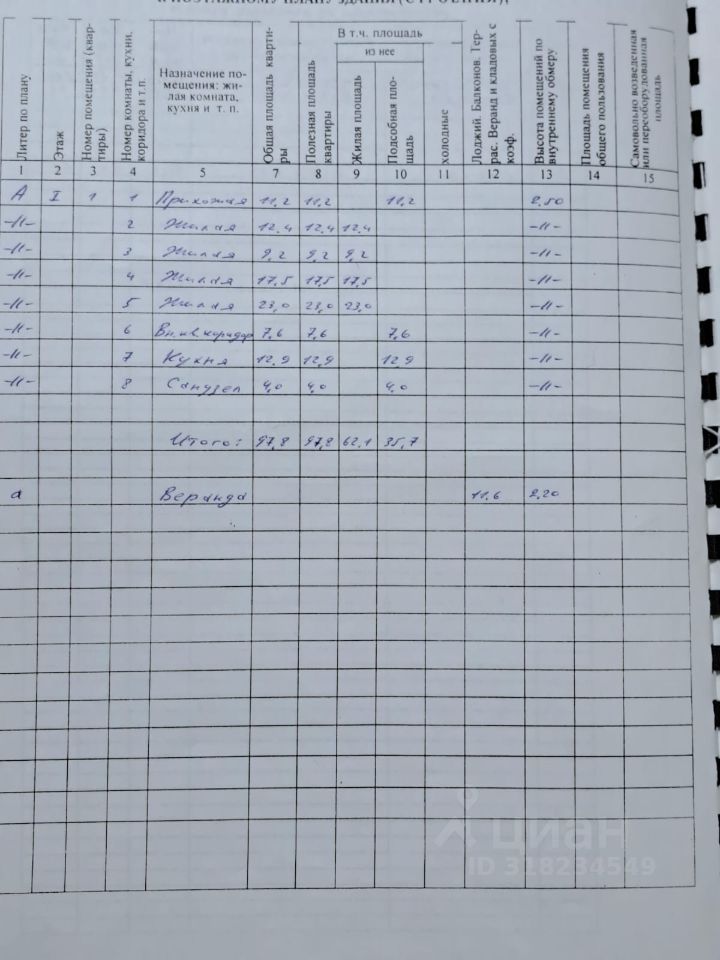 К ПОЭТАЖНОМУ ПЛАНУ ЗДАНИЯ (СТРОЕНИЯ),
Литер по плану
Этаж
Номер помещения (квар-
тиры)
Номер комнаты, кухни,
коридора и т.п.
Назначение по-
мещения: жи-
лая комната,
кухня и т. п.
Общая площадь кварти-
ры
В т.ч. площадь
Полезная площадь
квартиры
из нее
Жилая площадь
Подсобная пло-
щадь
холодные
Лоджий. Балконов. Тер-
рас. Веранд и кладовых с
коэф.
Высота помещений по
внутреннему обмеру
Площадь помещения
общего пользования
Самовольно возведенная
или переоборудованная
площадь
1 2 3 4 5 7 8 9 10 11 12 13 14 15
А I 1 1 Прихожая 11,2 11,2 11,2 2,50
-//- 2 Жилая 12,4 12,4 12,4 -//-
-//- 3 Жилая 9,2 9,2 9,2 -//-
-//- 4 Жилая 17,5 17,5 17,5 -//-
-//- 5 Жилая 23,0 23,0 23,0 -//-
-//- 6 Вн.кв.коридор 7,6 7,6 7,6 -//-
-//- 7 Кухня 12,9 12,9 12,9 -//-
-//- 8 Санузел 4,0 4,0 4,0 -//-
Итого: 97,8 97,8 62,1 35,7
а Веранда 11,6 2,20
циан
ID 318234549